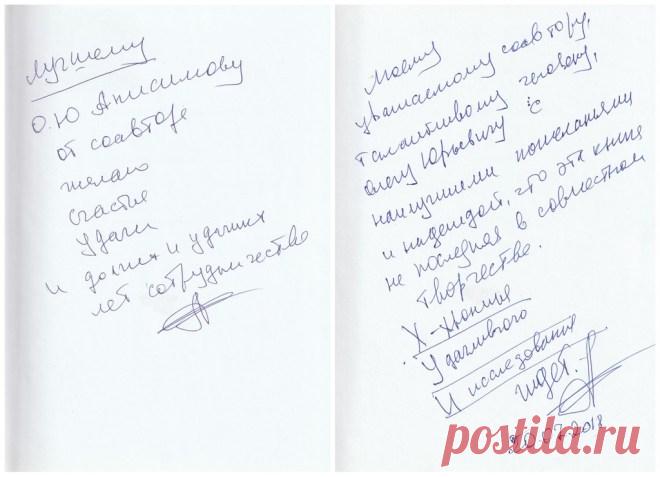 лучшему
О.Ю Анисимову
от соавтора
желаю
счастья
удачи
и долгих и удачных
лет сотрудничества
Моему
уважаемому соавтору,
талантливому человеку,
Олегу Юрьевичу с
наилучшими пожеланиями
и надеждой, что эта книга
не последняя в совместном
творчестве.
Удачливого
И исследования
ждет.
20.07.2018
postila.ru